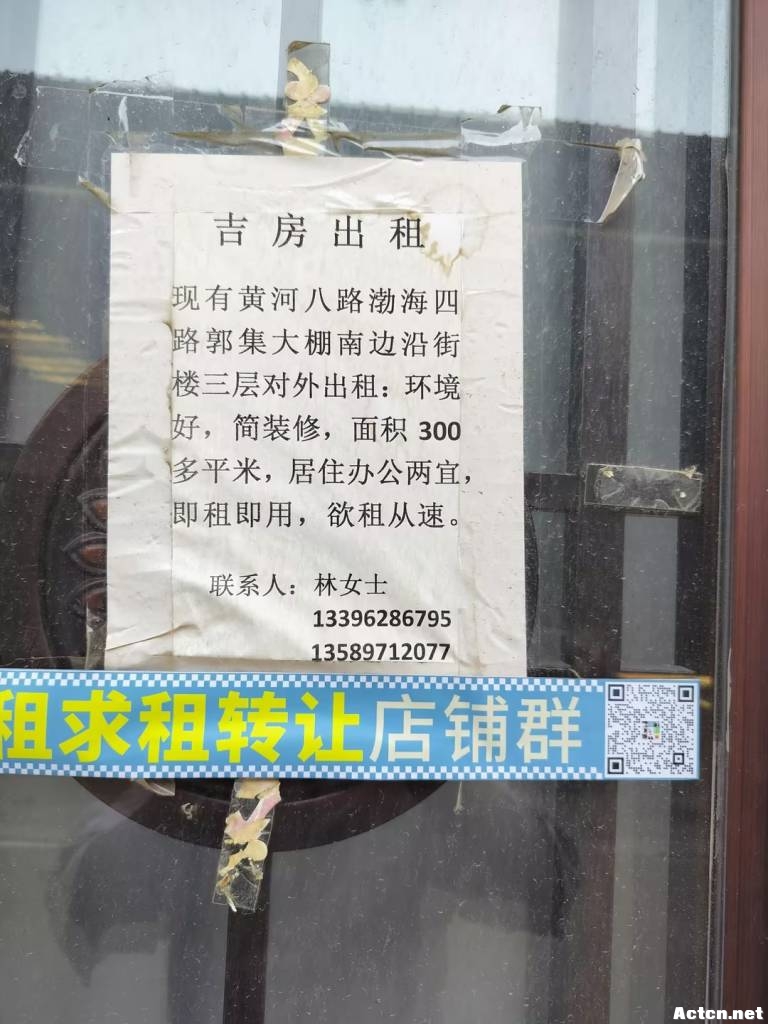 吉房出租
现有黄河八路渤海四
路郭集大棚南边沿街
楼三层对外出租：环境
好，简装修，面积 300
多平米，居住办公两宜，
即租即用，欲租从速。
联系人：林女士
13396286795
13589712077
租求租转让店铺群
Actcn.net